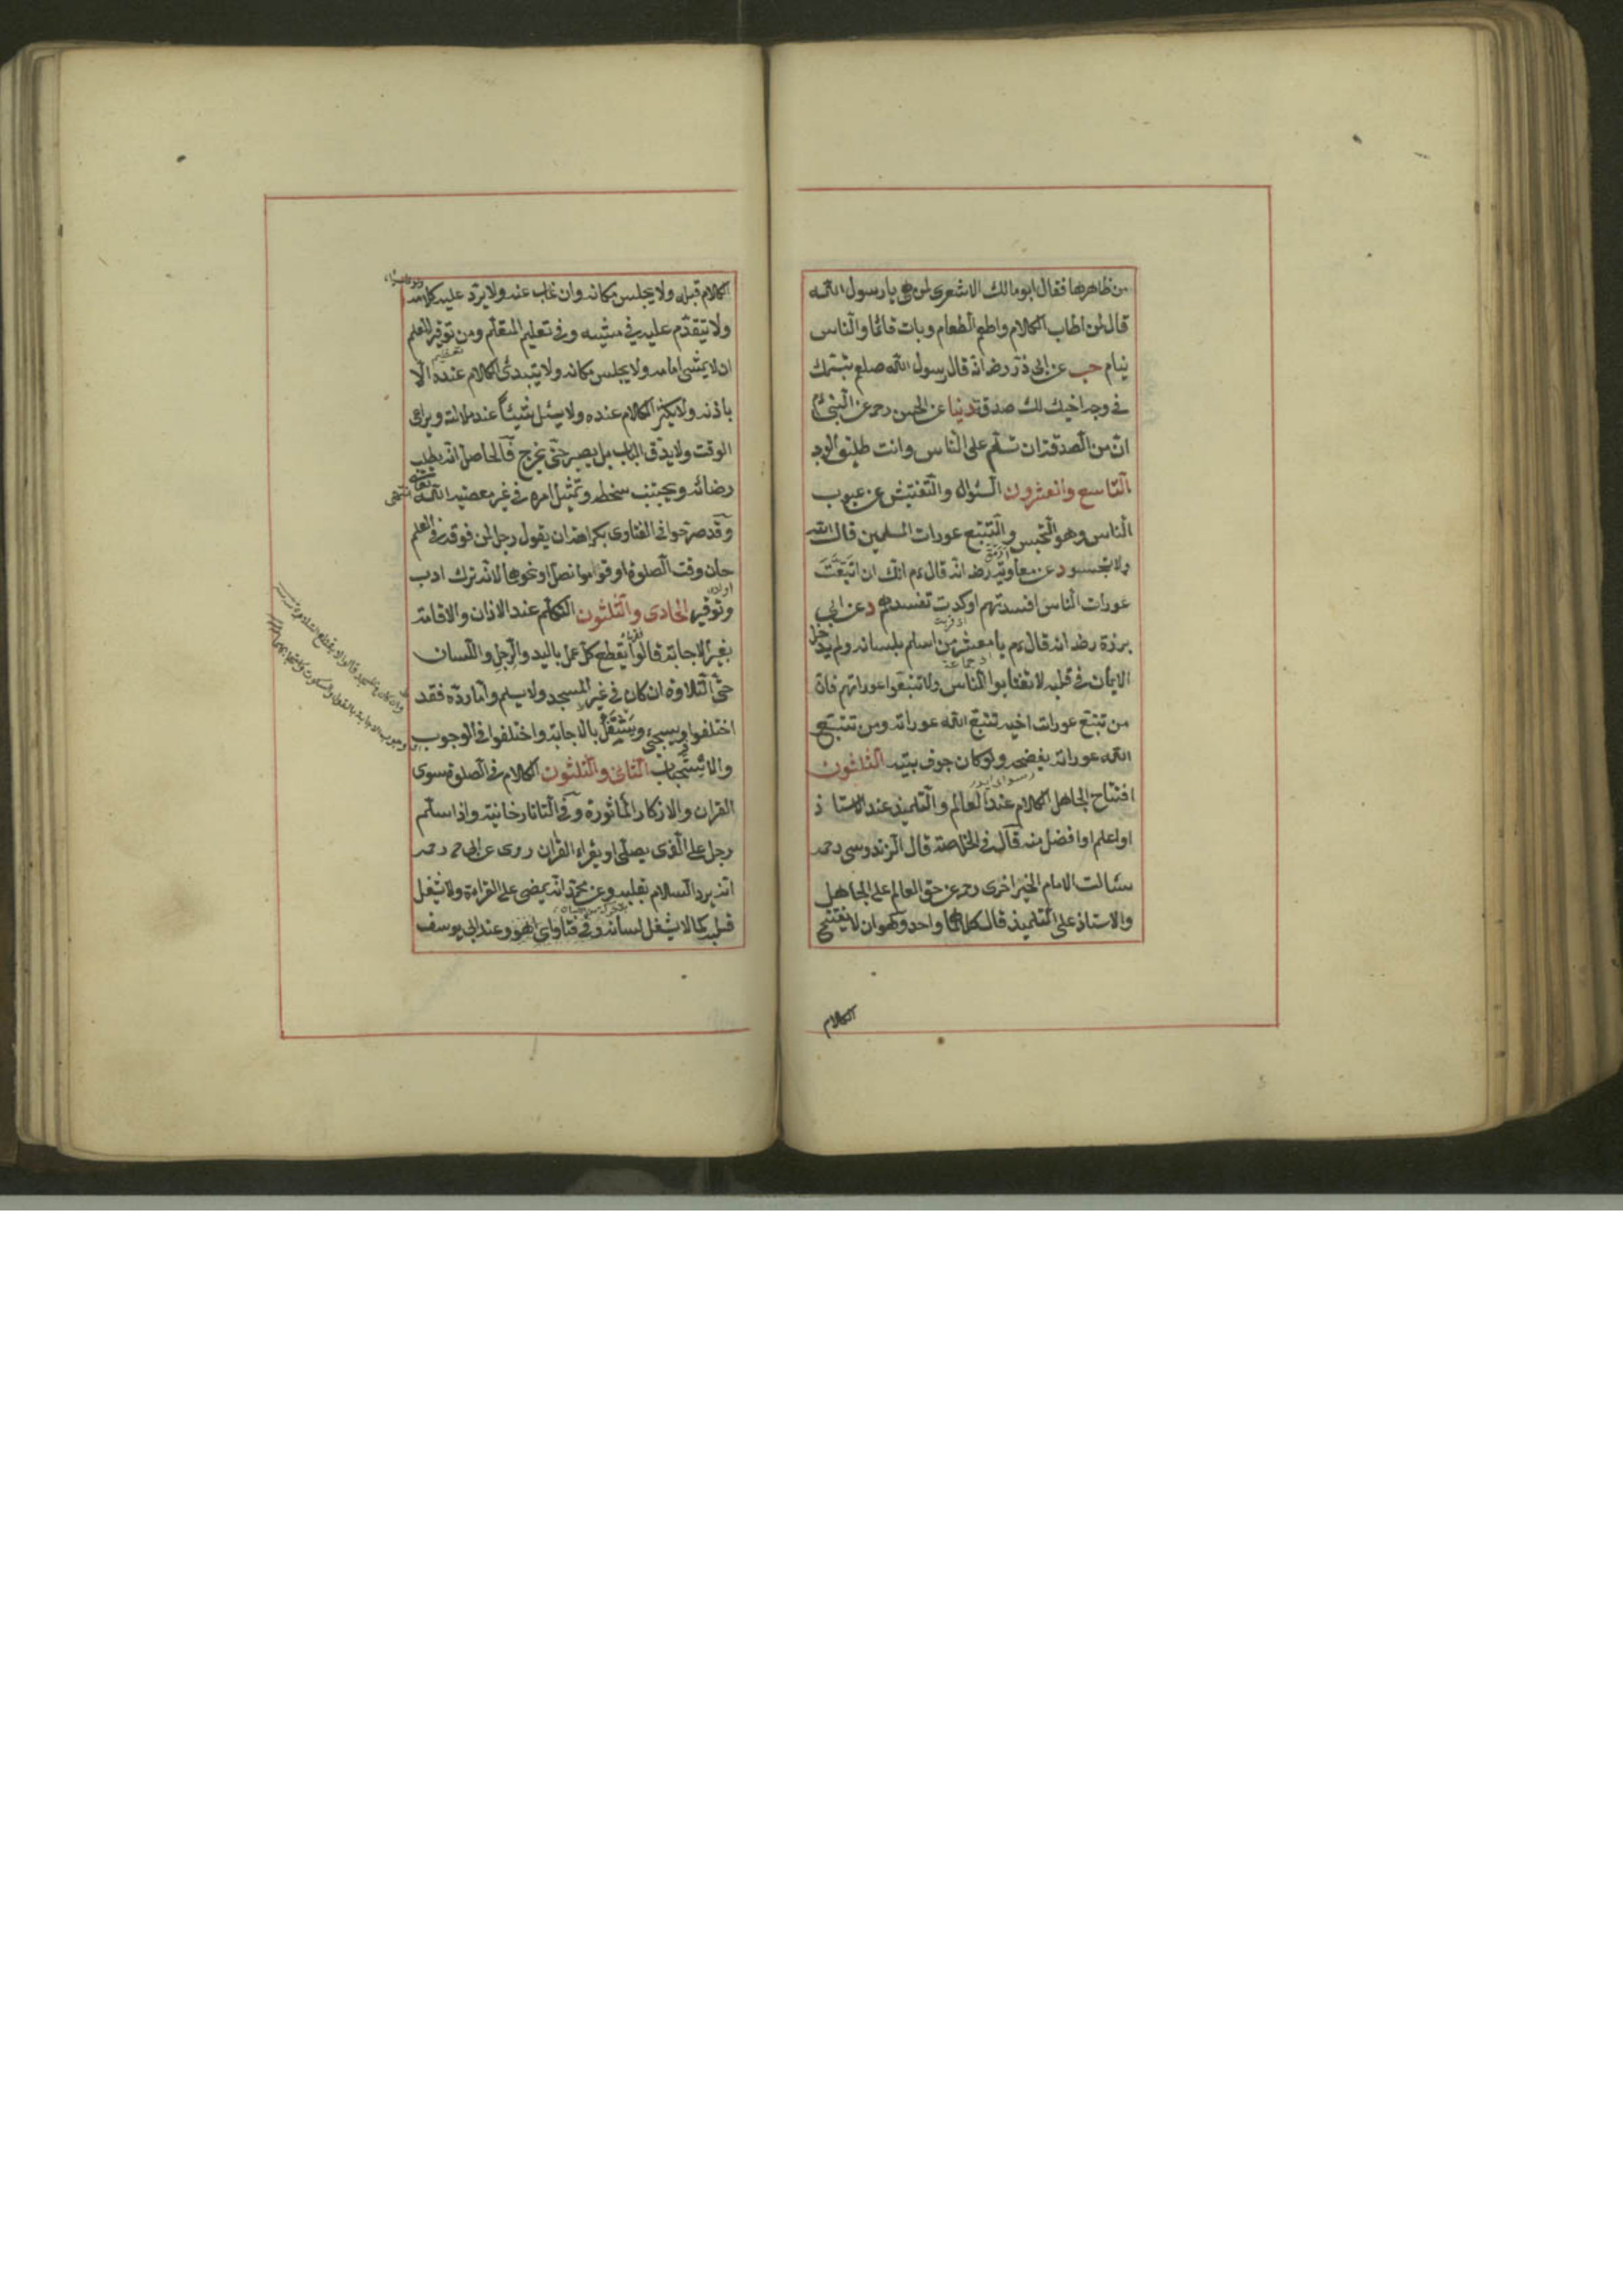 من ظاهرها فقال ابو مالك الاشعرى لمن هى يا رسول الله
قال لمن اطاب الكلام واطعم الطعام وبات قائما والناس
نيام حب عن ابى ذر رضه انه قال رسول الله صلعم تبسمك
فى وجه اخيك لك صدقة دنيا عن الحسن رحه عن النبى ءم
ان من الصدقة ان تسلم على الناس وانت طليق الوجه
التاسع والعشرون السؤال والتفتيش عن عيوب
الناس وهو التجسس والتتبع عورات المسلمين قال الله
ولا تجسسوا د عن معاوية رضه انه قال ءم انك ان اتبعت
عورات الناس افسدتهم او كدت تفسدهم د عن ابى
برزة رضه انه قال ءم يا معشر من اسلم بلسانه ولم يدخل
الايمان فى قلبه لا تغتابوا الناس ولا تتبعوا عوراتهم فان
من تتبع عورات اخيه تتبع الله عوراته ومن تتبع
الله عوراته يفضحه ولو كان جوف بيته الثلاثون
افتتاح الجاهل الكلام عند العالم والتلميذ عند الاستاذ
او اعلم او افضل منه قال فى الخلاصة قال الزندوسى رحه
سالت الامام الخيراخزى رحه عن حق العالم على الجاهل
والاستاذ على التلميذ قال كلاهما واحد وهو ان لا يفتتح
الكلام
الكلام قبله ولا يجلس مكانه وان غاب عنه ولا يرد عليه كلامه
ولا يتقدم عليه فى مشيه وفى تعليم المتعلم ومن توقير المعلم
ان لا يمشى امامه ولا يجلس مكانه ولا يتبدئ الكلام عنده الا
باذنه ولا يكثر الكلام عنده ولا يسئل شيئا عند ملالته ويراعى
الوقت ولا يدق الباب بل يصبر حتى يخرج فالحاصل انه يطلب
رضائه ويجتنب سخطه ويمتثل امره فى غير معصية الله تعالى انتهى
وقد صرحوا فى الفتاوى بكراهة ان يقول رجل لمن فوقه فى العلم
حان وقت الصلوة او قوموا نصل او نحوها لانه ترك ادب
وتوقير الحادى والثلثون التكلم عند الاذان والاقامة
بغير الاجابة قالوا يقطع كل عمل باليد والرجل واللسان
حتى التلاوة ان كان فى غير المسجد ولا يسلم واما رده فقد
اختلفوا ويشتغل بالاجابة واختلفوا فى الوجوب
والاستحباب الثانى والثلثون الكلام فى الصلوة سوى
القران والاذكار المأثورة وفى التاتارخانية واذا سلم
رجل على الذى يصلى او يقراء القران روى عن ابى ح رحه
انه يرد السلام بقلبه وعن محمد انه يمضى على القراءة ولا يشغل
قلبه كما لا يشغل لسانه وفى فتاواى اهو وعند ابى يوسف